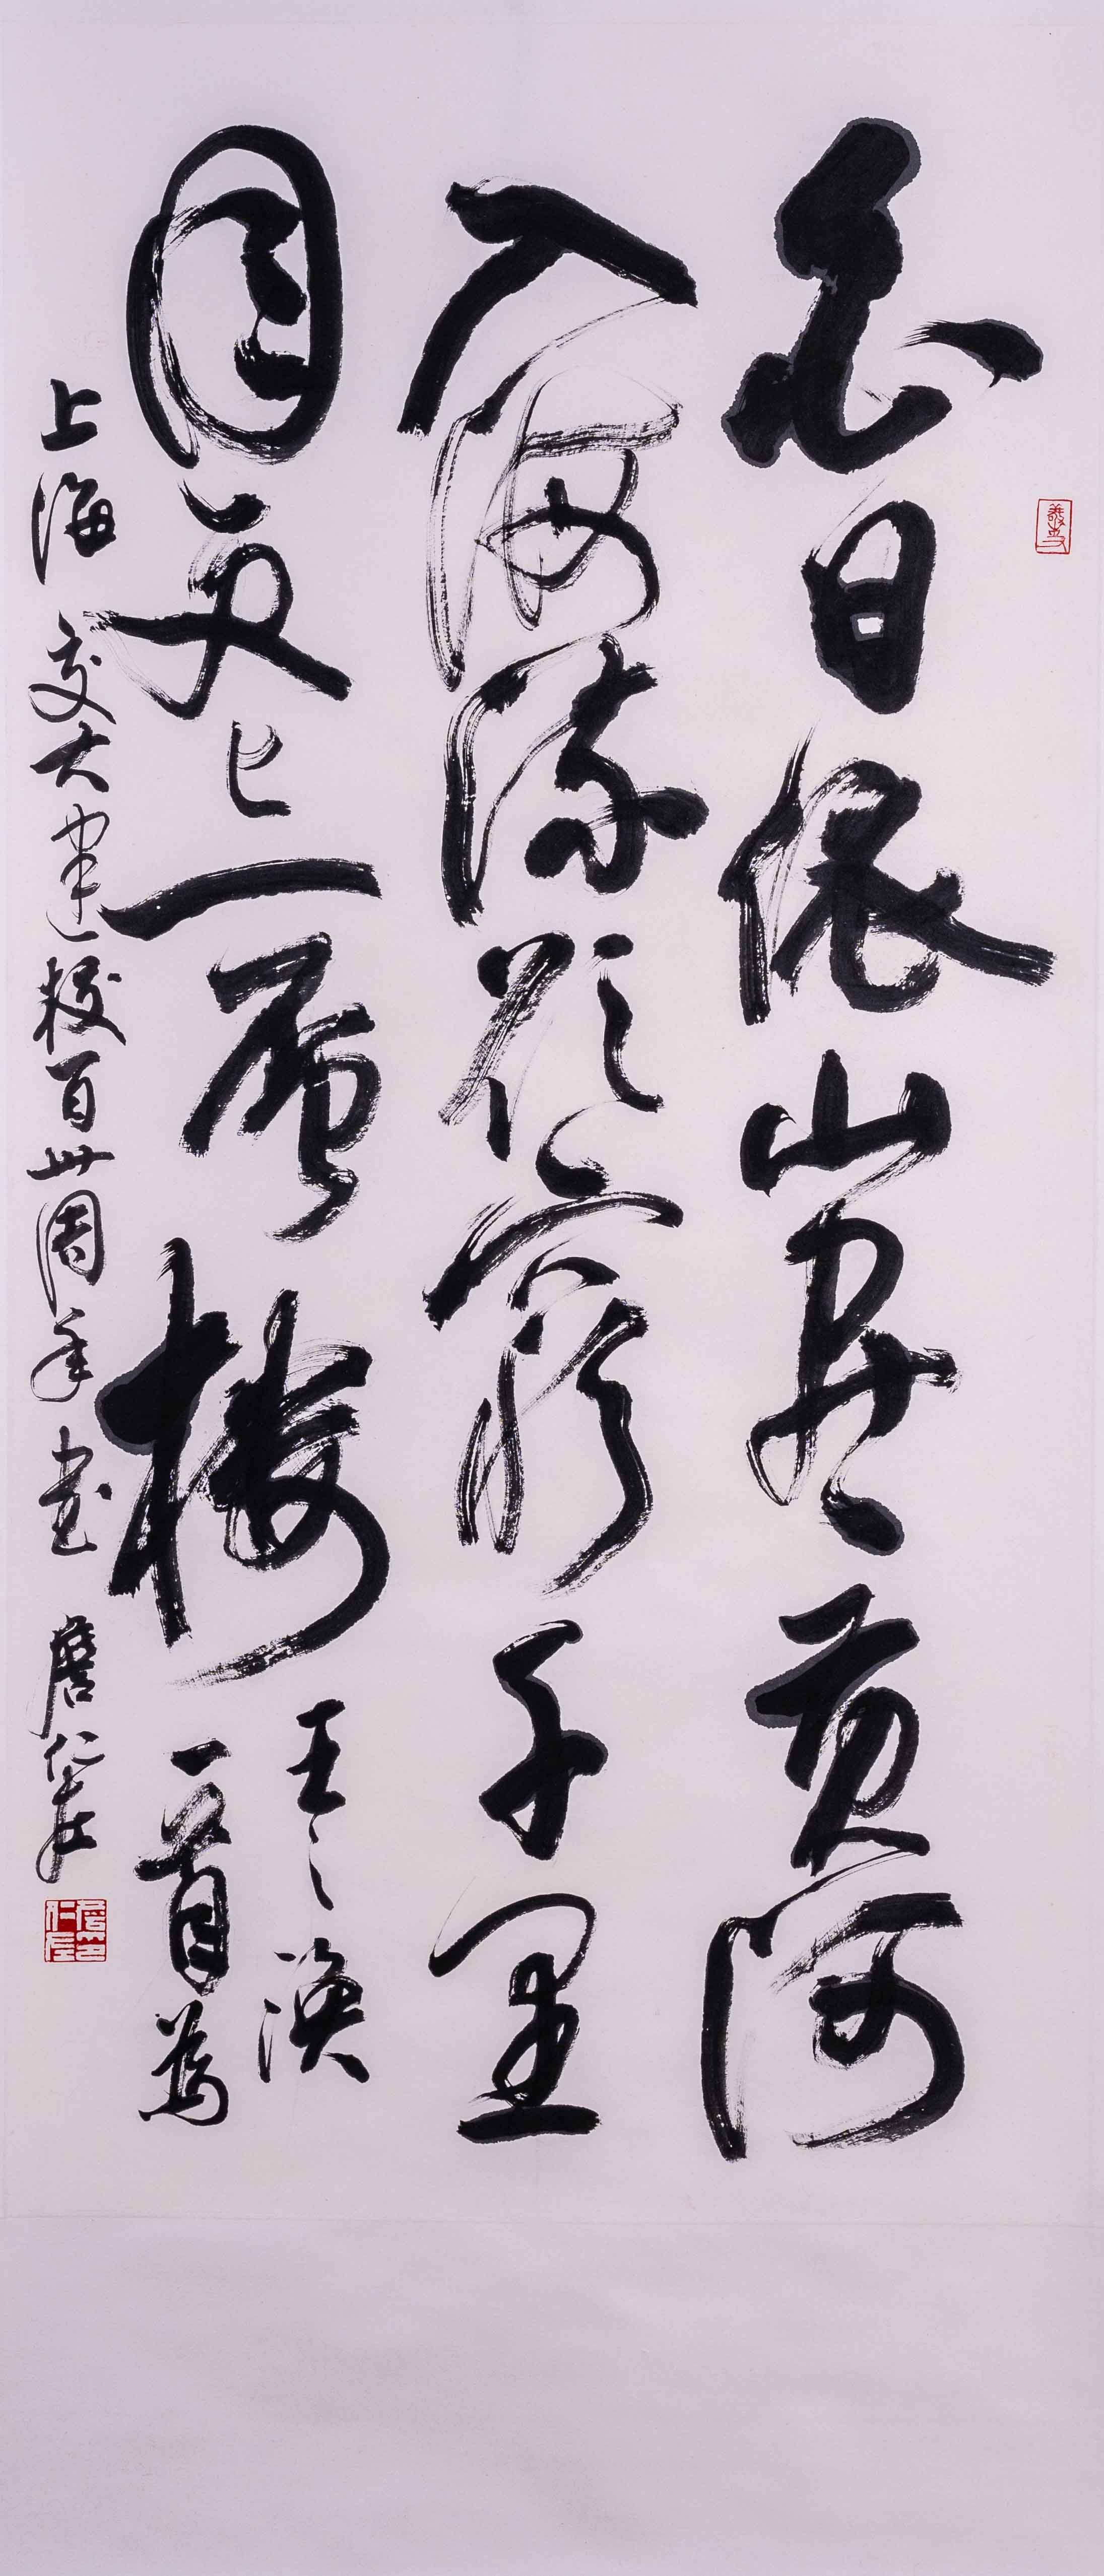 白日依山尽黄河
入海流欲穷千里
目更上一层楼
王之涣
一首为
上海交大建校百卅周年书 詹仁左
詹仁左